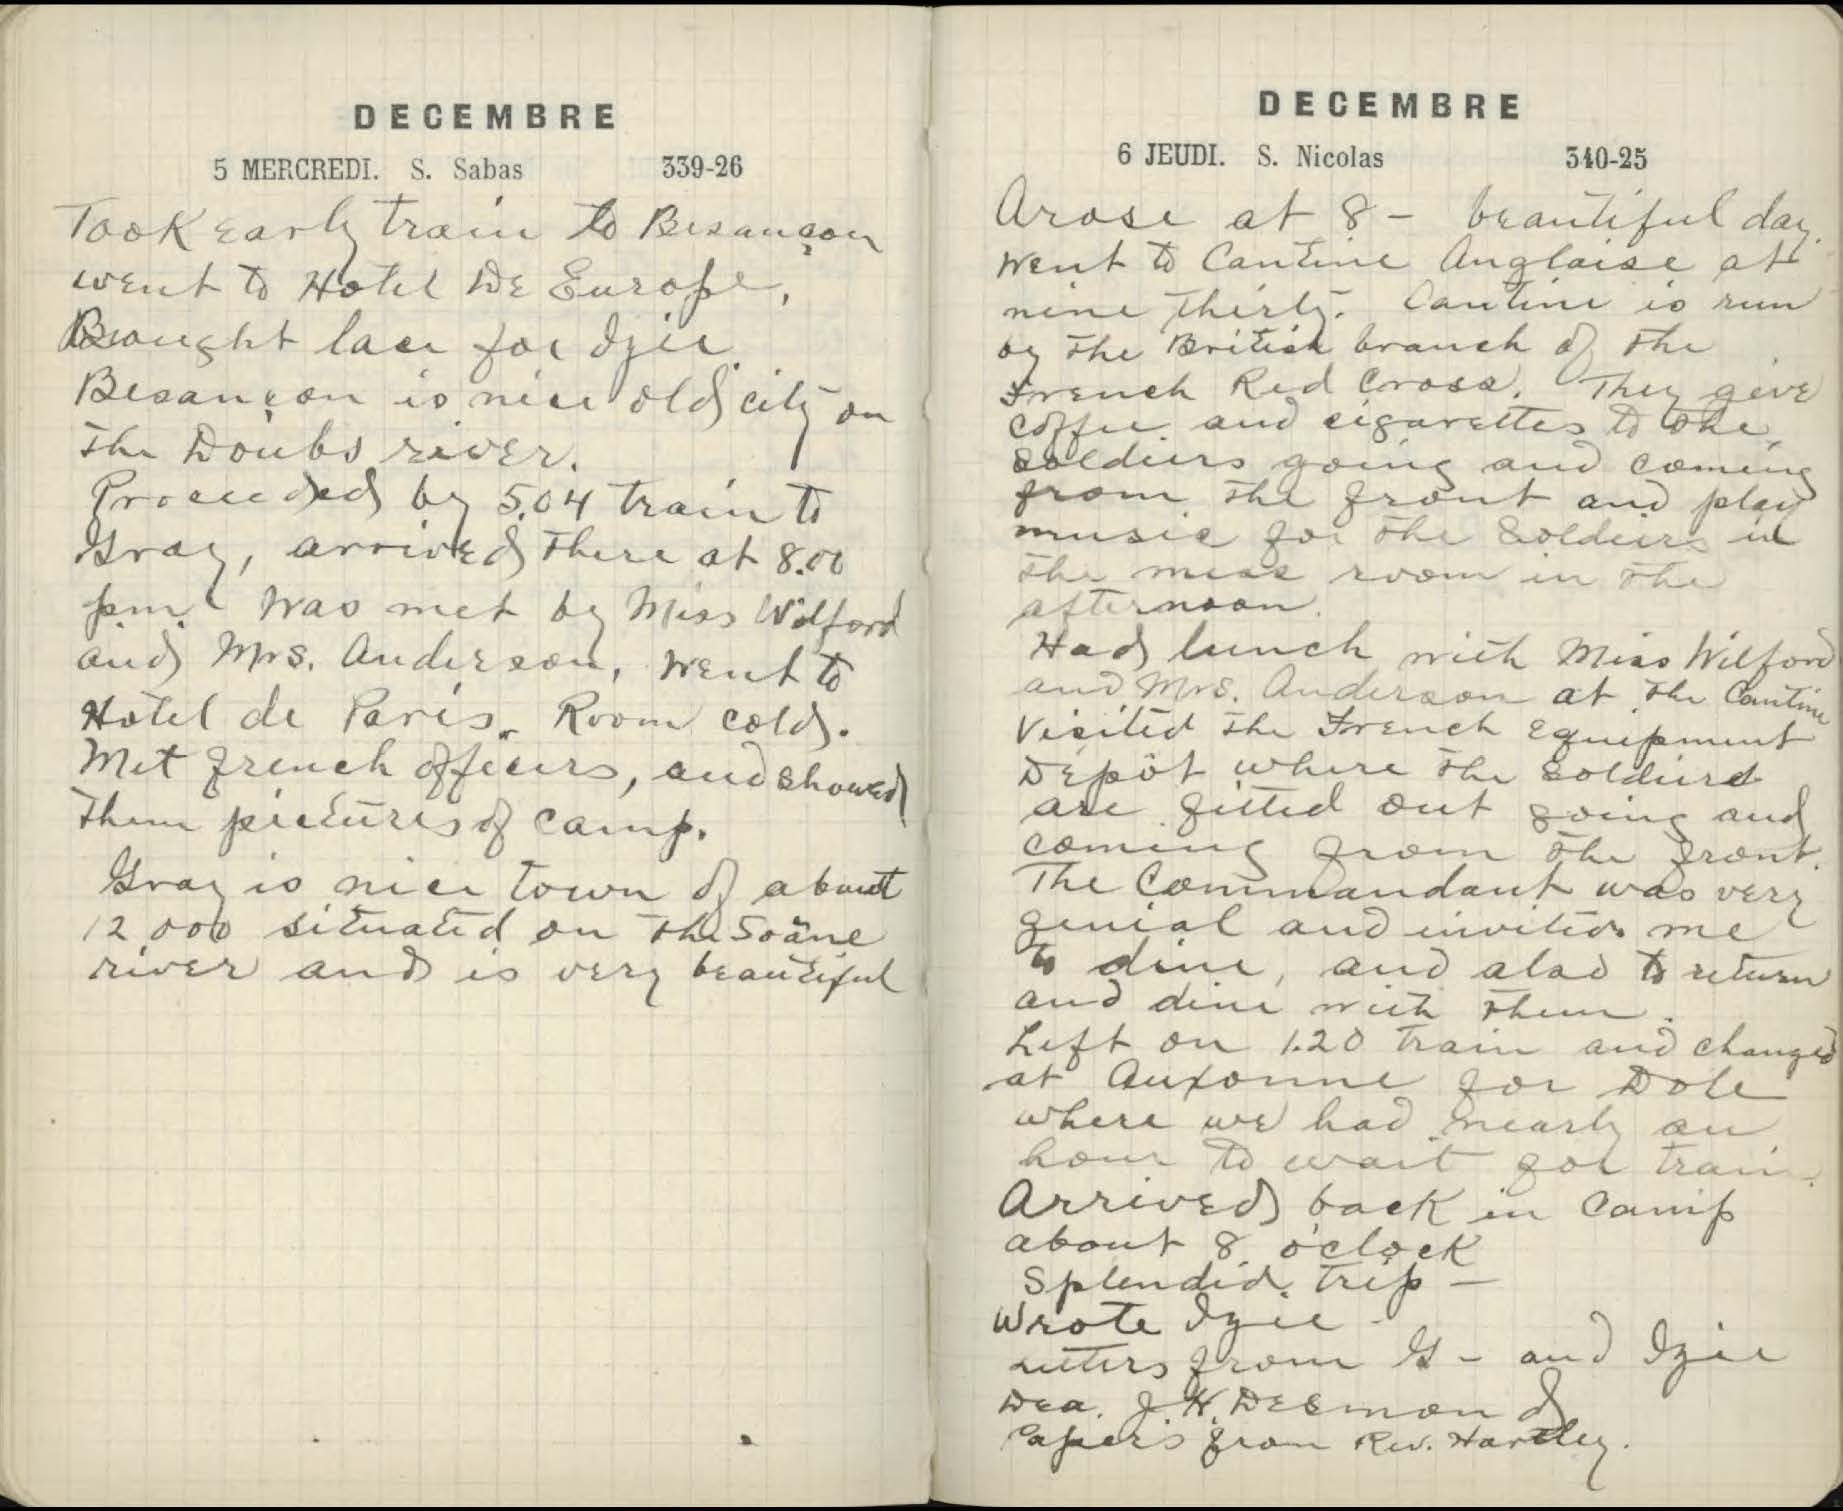 DECEMBRE
5 MERCREDI. S. Sabas 339-26
Took early train to Besançon
went to Hotel De Europe,
Brought lace for Izie.
Besançon is nice old city on
the Doubs river.
Proceeded by 5.04 train to
Gray, arrived there at 8.00
p.m. Was met by Miss Wilford
and Mrs. Anderson, Went to
Hotel de Paris. Room cold.
Met french officers, and showed
them pictures of camp.
Gray is nice town of about
12,000 situated on the Soâne
river and is very beautiful
DECEMBRE
6 JEUDI. S. Nicolas 340-25
Arose at 8 - beautiful day.
Went to Cantine Anglaise at
nine thirty. Cantine is run
by the British branch of the
French Red Cross. They give
coffee and cigarettes to the
soldiers going and coming
from the front and play
music for the soldiers in
the mess room in the
afternoon.
Had lunch with Miss Wilford
and Mrs. Anderson at the Cantine
Visited the French Equipment
Depôt where the soldiers
are fitted out going and
coming from the front.
The Commandant was very
genial and invited me
to dine, and also to return
and dine with them.
Left on 1.20 train and changed
at Auxonne for Dole
where we had nearly an
hour to wait for train.
Arrived back in Camp
about 8 o'clock
Splendid trip -
Wrote Izie -
Letters from G - and Izie
Dea. J. H. Desmond
Papers from Rev. Hartley.